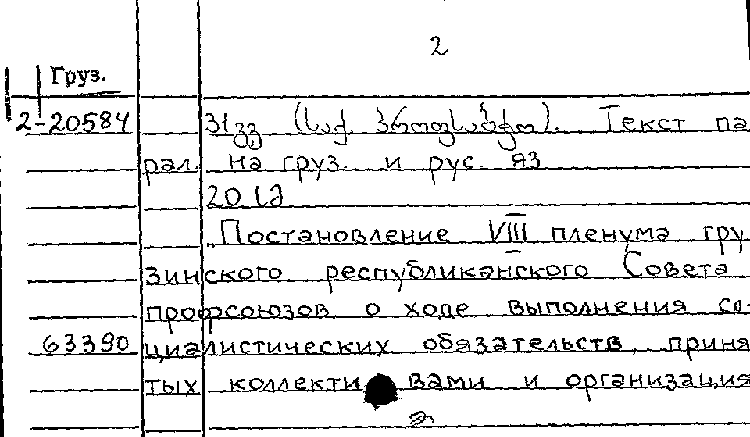 2
Груз.
2-20584 31გვ (საქ. პროფსაბჭო). Текст па
рал. на груз. и рус. яз
20 სმ
Постановление VIII пленума гру
зинского республиканского Совета
профсоюзов о ходе выполнения со-
63390 циалистических обязательств, приня
тых коллективами и организация